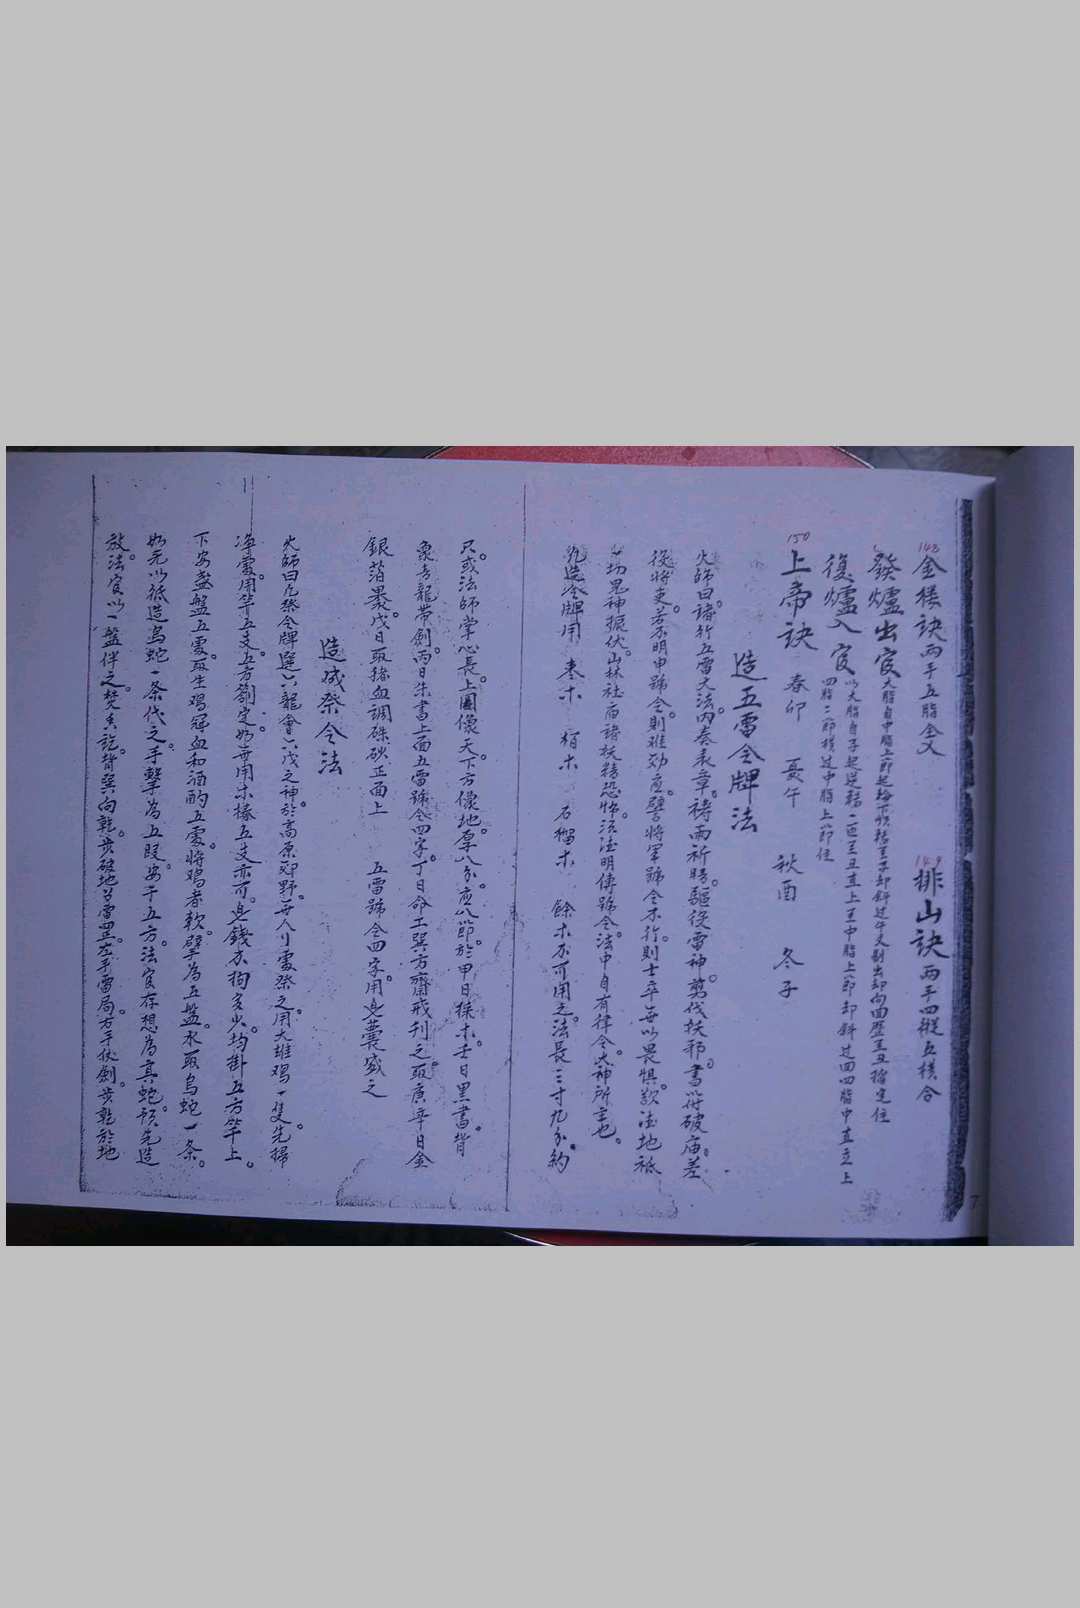 148 金樓訣 兩手五指全叉 149 排山訣 兩手四縱五橫合
發爐出官 大指自中指上節起輪
復爐入官 以大指自子起逆輪一匝至丑直上至中指上節却斜过四指中直立上
四指二節橫过中指上節住
150 上帝訣 春卯 夏午 秋酉 冬子
造五雷令牌法
火師曰。諸行五雷大法。內奏表章。禱雨祈晴。驅役雷神。剪伐妖邪。書符破庙。差
役將吏。若不明申號令。則难効应。譬將軍號令不行。則士卒每以畏惧。欬法地祇
一切鬼神振伏。山林社庙諸妖精恐怖。須法明傳號令。法中自有律令大神所主也。
凡造令牌用 枣木 栢木 石榴木 餘木不可用之。法長三寸九分。約
只。或法師掌心長。上圓像天。下方像地。厚八分。应八節。於甲日採木。壬日黑書。背
象青龍带劍。丙日朱書上面五雷號令四字。丁日命工巽方齋戒刊之。取庚辛日金
銀箔畏。戊日取猪血調硃砂正面上 五雷號令四字。用皂囊盛之
造威祭令法
火師曰凡祭令牌選六龍會六戊之神。於高原郊野。每人川處祭之。用大雄鸡一隻。先掃
净處。用竿五支。五方劄定。如無用木樁五支亦可。皂錢不拘多少。均掛五方竿上。
下安盏盤五處。取生鸡冠血和酒酌五處。將鸡煮軟。擘為五盤。水取烏蛇一条。
如无以紙造烏蛇一条代之。手擊為五段。安于五方。法官存想為真蛇。須先造
放。法官以一盤伴之。焚香訖。背巽向乾。步破地召雷罡。左手雷局。右手仗劍。步乾於地
7